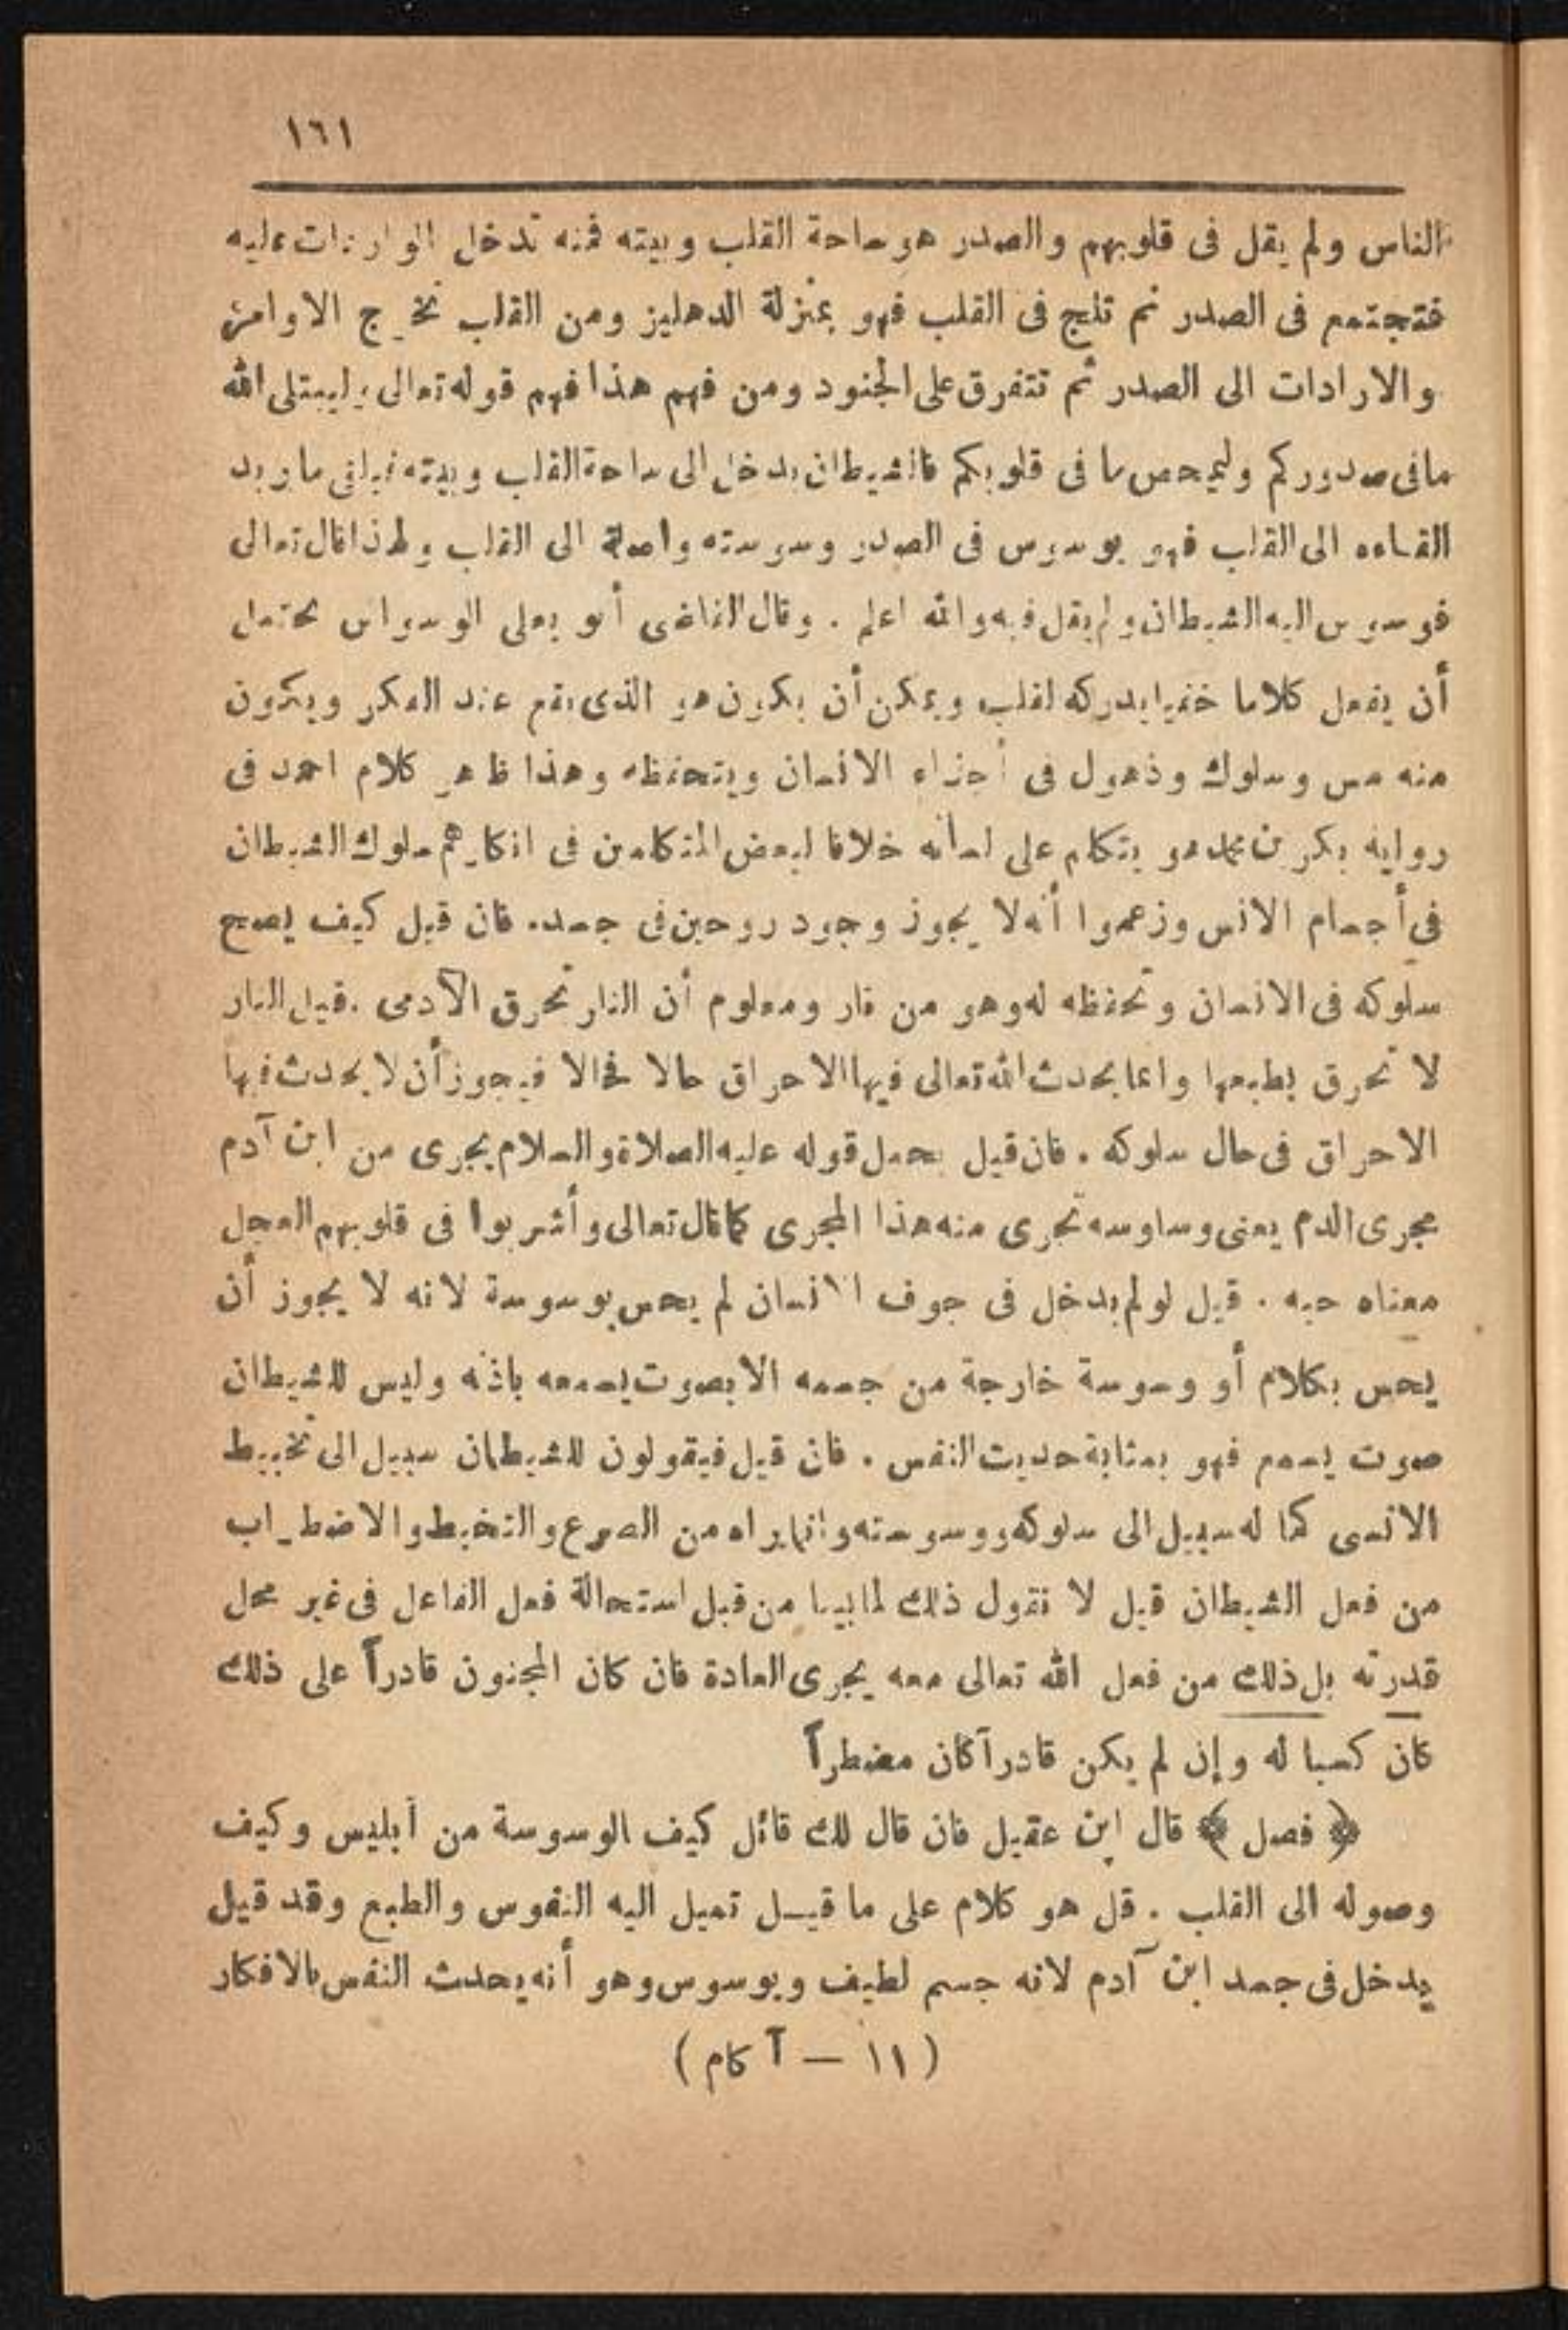 ١٦١
الناس ولم يقل فى قلوبهم والصدر هو ساحة القلب وبيته فمنه تدخل الواردات عليه
فتجتمع فى الصدر ثم تلج فى القلب فهو بمنزلة الدهليز ومن القلب تخرج الاوامر
والارادات الى الصدر ثم تتفرق على الجنود ومن فهم هذا فهم قوله تعالى ليبتلى الله
مافى صدوركم وليمحص ما فى قلوبكم فالشيطان يدخل الى ساحة القلب وبيته فيلقى ما يريد
القاءه الى القلب فهو يوسوس فى الصدر وسوسته واصلة الى القلب ولهذا قال تعالى
فوسوس اليه الشيطان ولم يقل فيه والله اعلم . وقال القاضى أبو يعلى الوسواس يحتمل
أن يفعل كلاما خفيا يدركه القلب ويمكن أن يكون هو الذى يقع عند الفكر ويكون
منه مس وسلوك وذهول فى أجزاء الانسان ويتحفظه وهذا ظاهر كلام احمد فى
رواية بكر بن محمد هو يتكلم على لسانه خلافا لبعض المتكلمين فى انكارهم سلوك الشيطان
فى أجسام الانس وزعموا أنه لا يجوز وجود روحين فى جسد. فان قيل كيف يصح
سلوكه فى الانسان وتحفظه له وهو من نار ومعلوم أن النار تحرق الآدمى .قيل النار
لا تحرق بطبعها وانما يحدث الله تعالى فيها الاحراق حالا فحالا فيجوز أن لا يحدث فيها
الاحراق فى حال سلوكه . فان قيل يحمل قوله عليه الصلاة والسلام يجرى من ابن آدم
مجرى الدم يعنى وساوسه تجرى منه هذا المجرى كما قال تعالى وأشربوا فى قلوبهم العجل
معناه حبه . قيل لو لم يدخل فى جوف الانسان لم يحس بوسوسة لانه لا يجوز أن
يحس بكلام أو وسوسة خارجة من جسمه الا بصوت يسمعه باذنه وليس للشيطان
صوت يسمع فهو بمثابة حديث النفس . فان قيل فيقولون للشيطان سبيل الى تخبيط
الانسى كما له سبيل الى سلوكه ووسوسته وانما يراه من الصرع والتخبط والاضطراب
من فعل الشيطان قيل لا نقول ذلك لما بينا من قبل استحالة فعل الفاعل فى غير محل
قدرته بل ذلك من فعل الله تعالى معه يجرى العادة فان كان المجنون قادراً على ذلك
كان كسبا له وإن لم يكن قادراً كان مضطراً
﴿ فصل ﴾ قال ابن عقيل فان قال لك قائل كيف الوسوسة من أبليس وكيف
وصوله الى القلب . قل هو كلام على ما قيل تميل اليه النفوس والطبع وقد قيل
يدخل فى جسد ابن آدم لانه جسم لطيف ويوسوس وهو أنه يحدث النفس بالافكار
( ١١ — آكام )